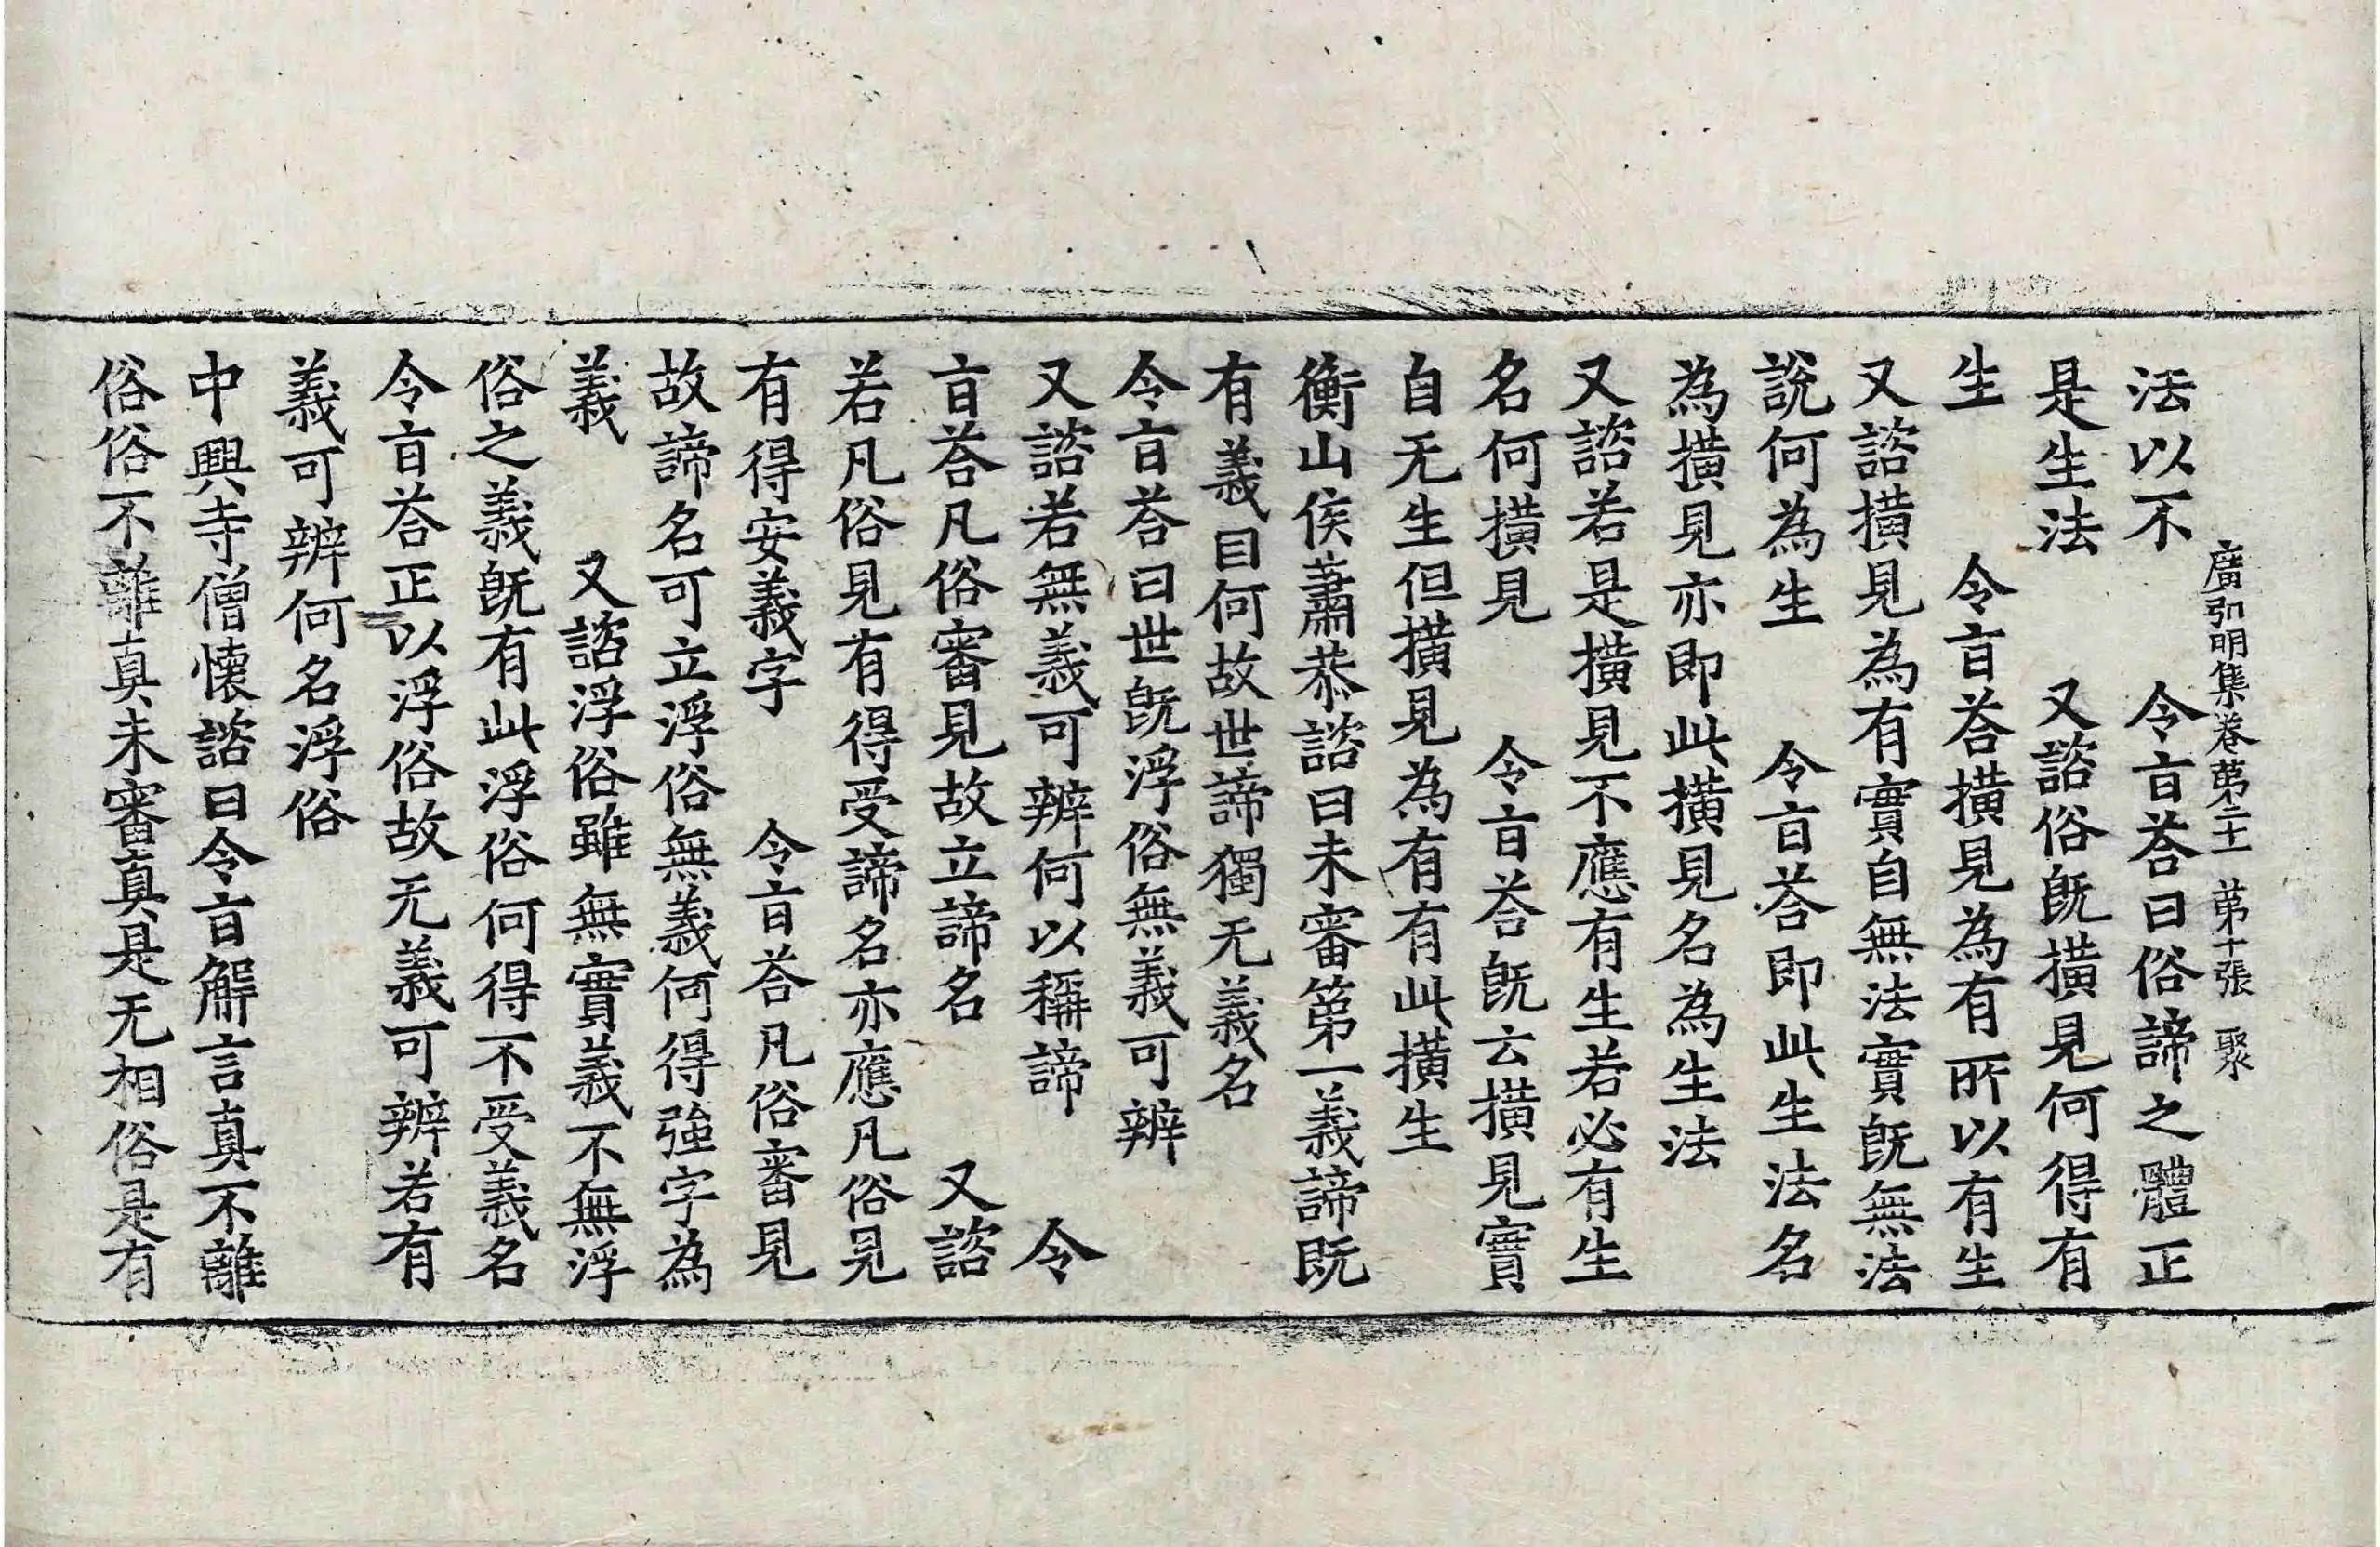 廣弘明集卷第二十一 第十張 聚
法以不 令旨荅曰俗諦之體正
是生法 又諮俗旣撗見何得有
生 令旨荅撗見為有所以有生
又諮撗見為有實自無法實旣無法
說何為生 令旨荅即此生法名
為撗見亦即此撗見名為生法
又諮若是撗見不應有生若必有生
名何撗見 令旨荅旣云撗見實
自无生但撗見為有有此撗生
衡山侯蕭恭諮曰未審第一義諦旣
有義目何故世諦獨无義名
令旨荅曰世旣浮俗無義可辨
又諮若無義可辨何以稱諦 令
旨荅凡俗審見故立諦名 又諮
若凡俗見有得受諦名亦應凡俗見
有得安義字 令旨荅凡俗審見
故諦名可立浮俗無義何得強字為
義 又諮浮俗雖無實義不無浮
俗之義旣有此浮俗何得不受義名
令旨荅正以浮俗故无義可辨若有
義可辨何名浮俗
中興寺僧懷諮曰令旨解言真不離
俗俗不離真未審真是无相俗是有